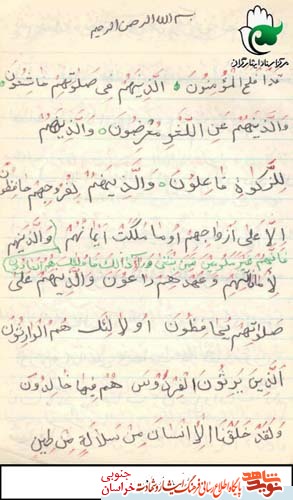 بسم الله الرحمن الرحیم
مرکز اسناد ایثارگران
قد افلح المؤمنون الذینهم فی صلوتهم خاشعون
والذینهم عن اللغو معرضون والذینهم
للزکوة فاعلون والذینهم لفروجهم حافظون
الا علی ازواجهم او ما ملکت ایمانهم والذینهم
فانهم غیر ملومین فمن ابتغی وراء ذالک فاولئک هم العادون
لاماناتهم و عهدهم راعون والذینهم علی
صلوتهم یحافظون اولائک هم الوارثون
الذین یرثون الفردوس هم فیها خالدون
ولقد خلقنا الانسان من سلالة من طین
نوید شاهد
پایگاه اطلاع رسانی فرهنگ ایثار و شهادت خراسان جنوبی